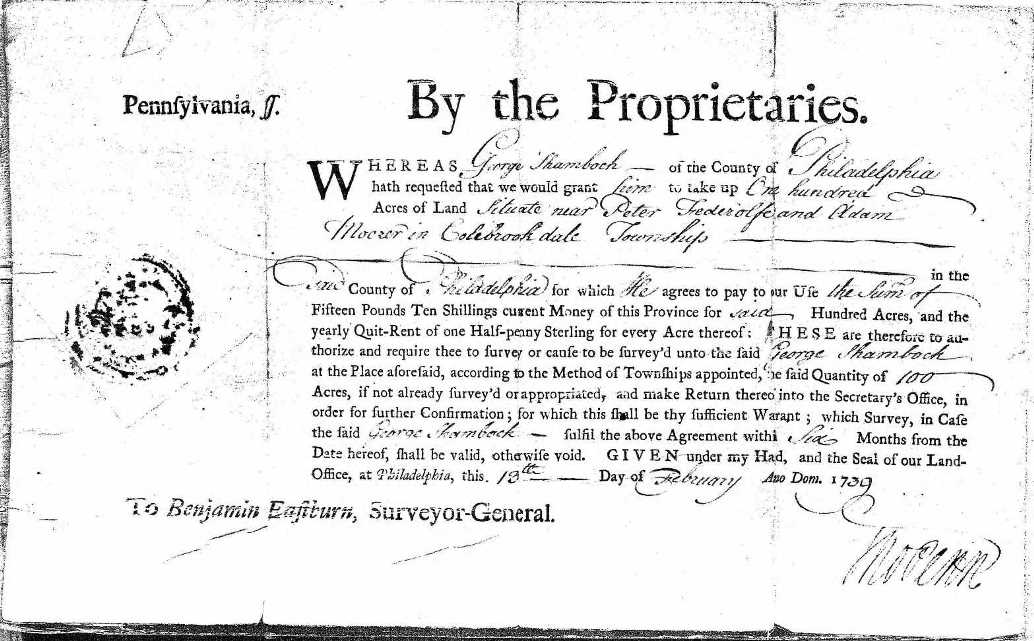 Pennſylvania, ſſ.
By the Proprietaries.
WHEREAS George Shamboch of the County of Philadelphia
hath requeſted that we would grant him to take up One hundred
Acres of Land Situate near Peter Federolfe and Adam
Moorer in Colebrookdale Township
in the
Said County of Philadelphia for which He agrees to pay to our Uſe the Sum of
Fifteen Pounds Ten Shillings curent Money of this Province for said Hundred Acres, and the
yearly Quit-Rent of one Half-penny Sterling for every Acre thereof: THESE are therefore to au-
thorize and require thee to ſurvey or cauſe to be ſurvey'd unto the ſaid George Shamboch
at the Place aforeſaid, according to the Method of Townſhips appointed, he ſaid Quantity of 100
Acres, if not already ſurvey'd or appropriated, and make Return thereo into the Secretary's Office, in
order for further Confirmation; for which this ſhall be thy ſufficient Warant; which Survey, in Caſe
the ſaid George Shamboch fulfil the above Agreement withi Six Months from the
Date hereof, ſhall be valid, otherwiſe void. GIVEN under my Had, and the Seal of our Land-
Office, at Philadelphia, this 13th Day of February Ano Dom. 1739
To Benjamin Eaſtburn, Surveyor-General.